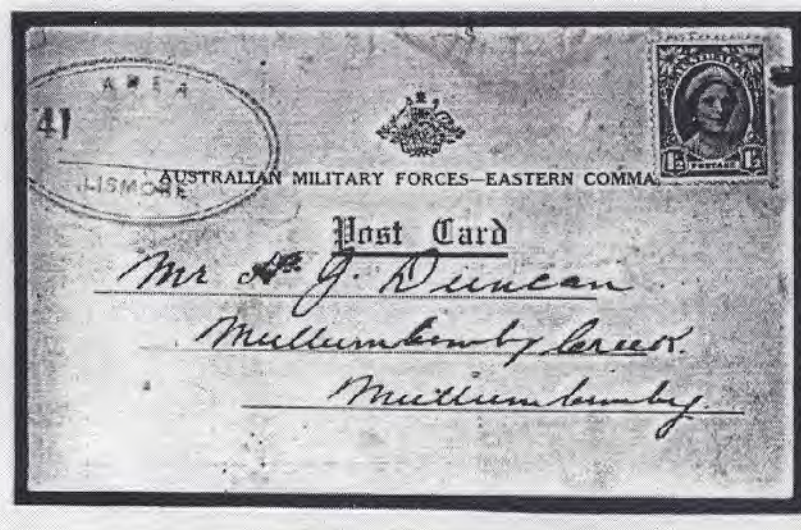 AREA
41
LISMORE
AUSTRALIA
1½ POSTAGE 1½
AUSTRALIAN MILITARY FORCES—EASTERN COMMA
Post Card
Mr H. J. Duncan
Mullumbimby Creek.
Mullumbimby.